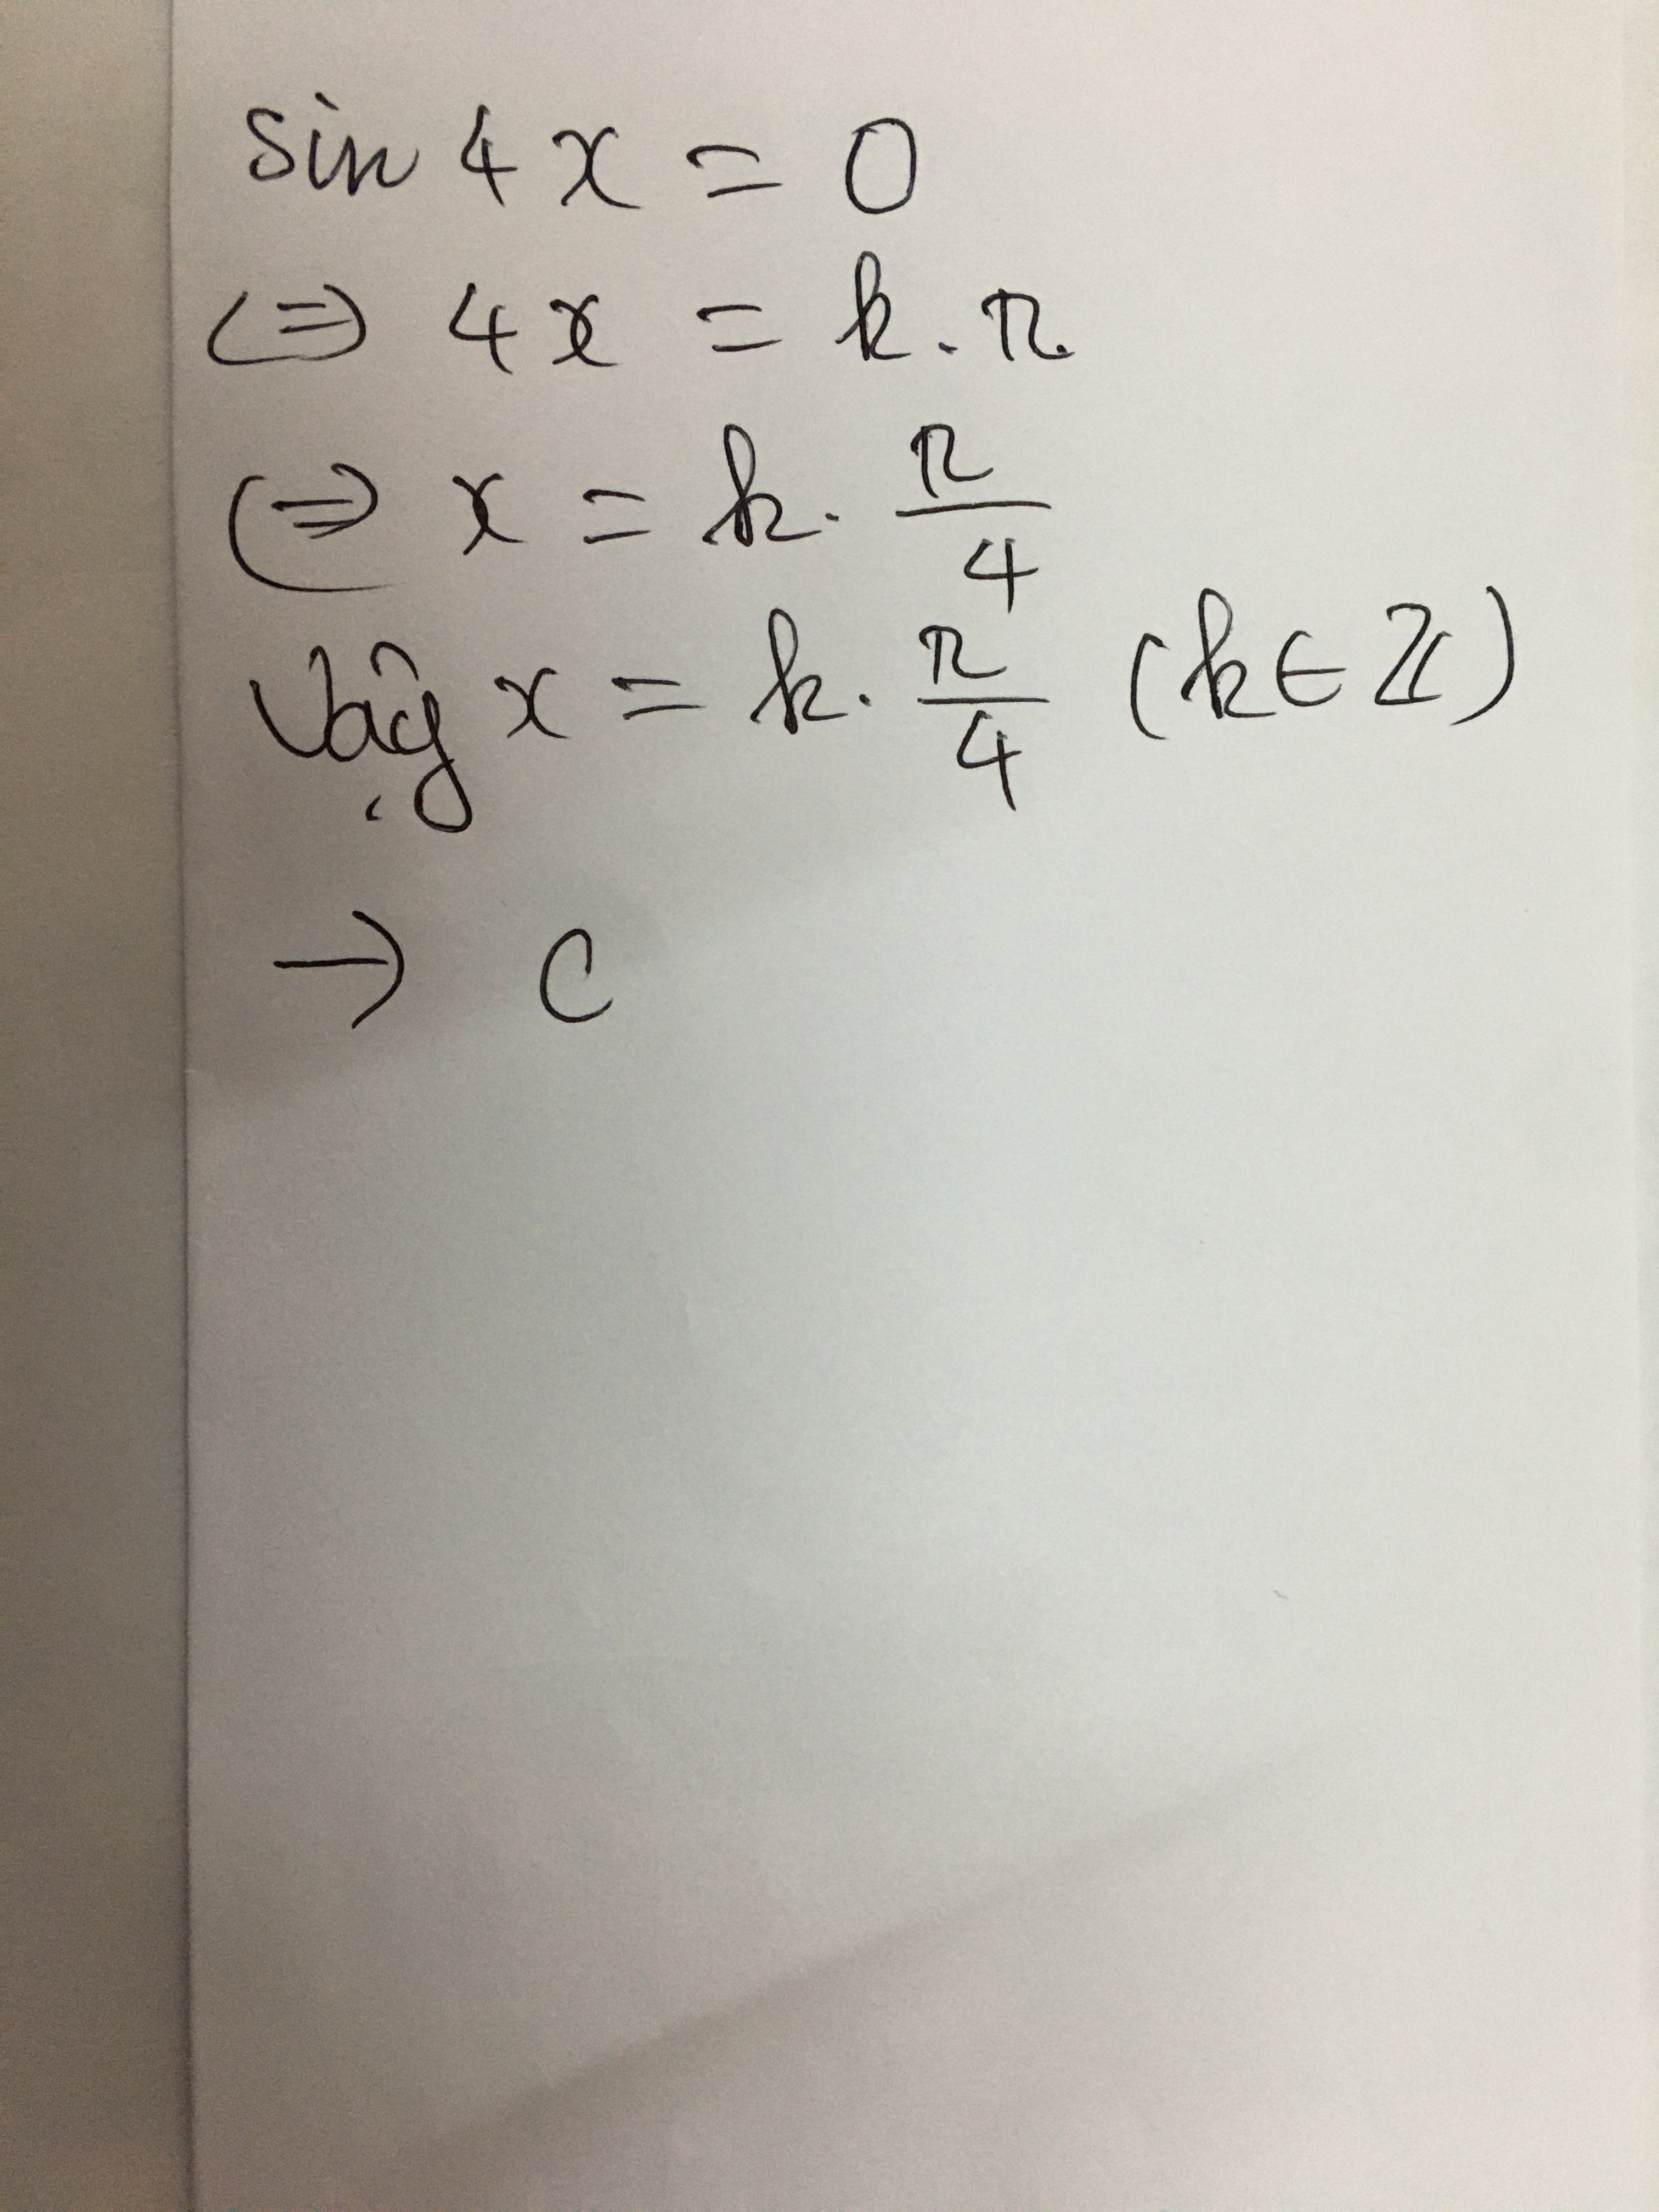 sin 4x = 0
⇔ 4x = k.π.
⇔ x = k. π/4
Vậy x = k. π/4 (k ∈ ℤ)
→ C